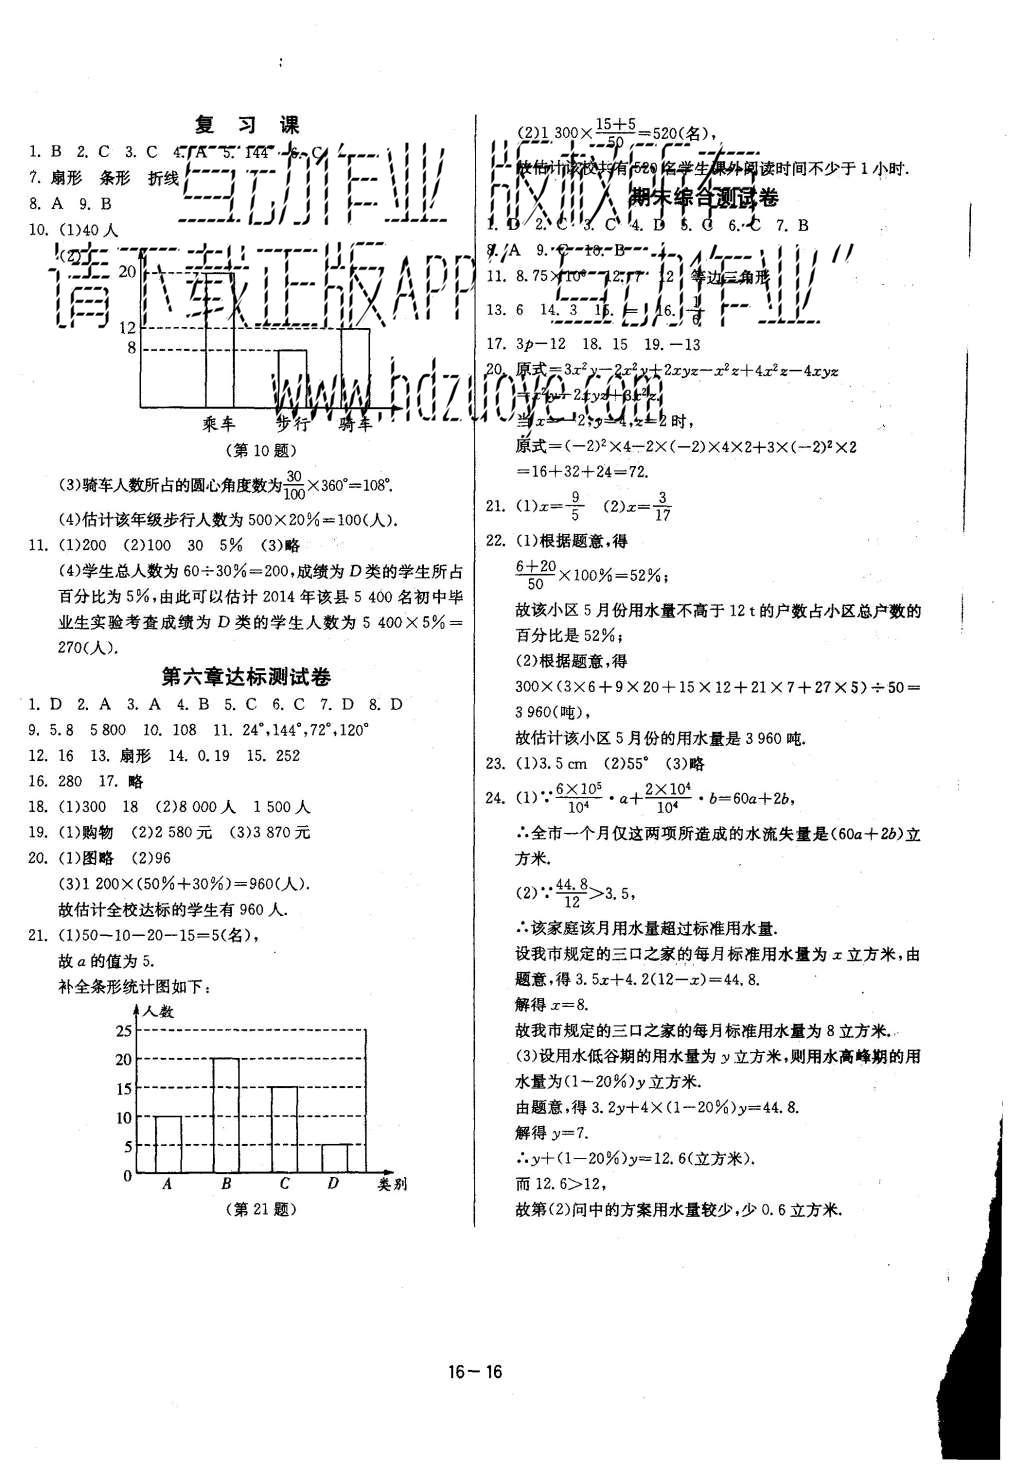 复 习 课
1. B 2. C 3. C 4. A 5. 144 6. C
7. 扇形 条形 折线
8. A 9. B
10. (1)40人
(2)
20
12
8
乘车 步行 骑车
(第10题)
(3)骑车人数所占的圆心角度数为30/100×360°=108°.
(4)估计该年级步行人数为500×20%=100(人).
11. (1)200 (2)100 30 5% (3)略
(4)学生总人数为60÷30%=200,成绩为D类的学生所占
百分比为5%,由此可以估计2014年该县5 400名初中毕
业生实验考查成绩为D类的学生人数为5 400×5%=
270(人).
第六章达标测试卷
1. D 2. A 3. A 4. B 5. C 6. C 7. D 8. D
9. 5.8 5 800 10. 108 11. 24°,144°,72°,120°
12. 16 13. 扇形 14. 0.19 15. 252
16. 280 17. 略
18. (1)300 18 (2)8 000人 1 500人
19. (1)购物 (2)2 580元 (3)3 870元
20. (1)图略 (2)96
(3)1 200×(50%+30%)=960(人).
故估计全校达标的学生有960人.
21. (1)50-10-20-15=5(名),
故a的值为5.
补全条形统计图如下:
人数
25
20
15
10
5
0
A B C D 类别
(第21题)
(2)1 300×(15+5)/50=520(名),
故估计该校共有520名学生课外阅读时间不少于1小时.
期末综合测试卷
1. D 2. C 3. C 4. D 5. C 6. C 7. B
8. A 9. C 10. B
11. 8.75×10⁶ 12. 等边三角形
13. 6 14. 3 15. = 16. 1/6
17. 3p-12 18. 15 19. -13
20. 原式=3x²y-2x²y+2xyz-x²z+4x²z-4xyz
=x²y-2xyz+3x²z.
当x=-2,y=4,z=2时,
原式=(-2)²×4-2×(-2)×4×2+3×(-2)²×2
=16+32+24=72.
21. (1)x=9/5 (2)x=3/17
22. (1)根据题意,得
(6+20)/50×100%=52%;
故该小区5月份用水量不高于12 t的户数占小区总户数的
百分比是52%;
(2)根据题意,得
300×(3×6+9×20+15×12+21×7+27×5)÷50=
3 960(吨),
故估计该小区5月份的用水量是3 960吨.
23. (1)3.5 cm (2)55° (3)略
24. (1)∵(6×10⁵)/10⁴·a+(2×10⁴)/10⁴·b=60a+2b,
∴全市一个月仅这两项所造成的水流失量是(60a+2b)立
方米.
(2)∵44.8/12>3.5,
∴该家庭该月用水量超过标准用水量.
设我市规定的三口之家的每月标准用水量为x立方米,由
题意,得3.5x+4.2(12-x)=44.8.
解得x=8.
故我市规定的三口之家的每月标准用水量为8立方米.
(3)设用水低谷期的用水量为y立方米,则用水高峰期的用
水量为(1-20%)y立方米.
由题意,得3.2y+4×(1-20%)y=44.8.
解得y=7.
∴y+(1-20%)y=12.6(立方米).
而12.6>12,
故第(2)问中的方案用水量较少,少0.6立方米.
互动作业 版权所有
请下载正版APP“互动作业”
www.hdzuoye.com
16-16